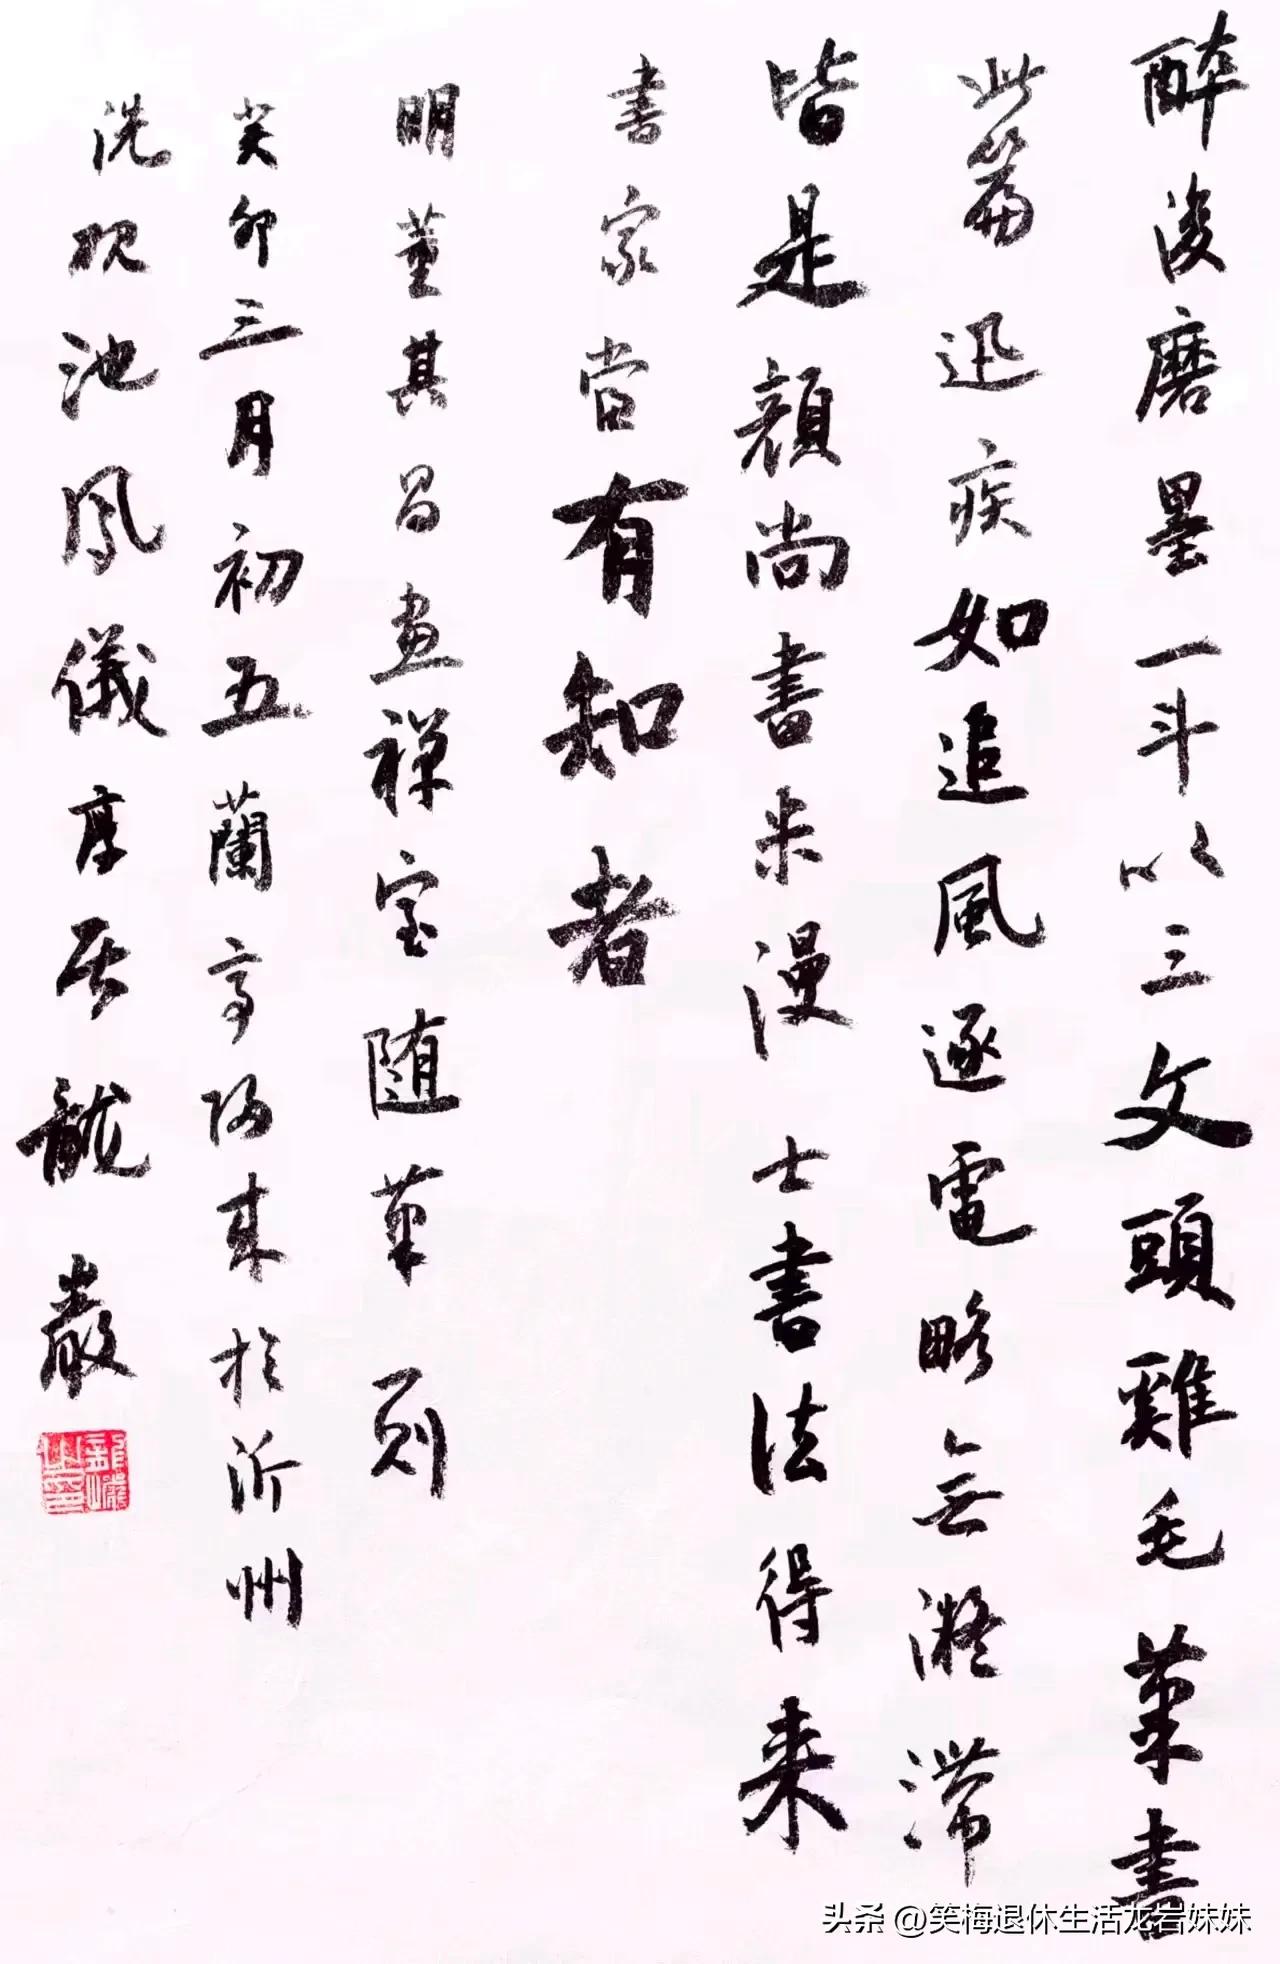 醉後磨墨一斗以三文頭雞毛筆書
此篇迅疾如追風逐電略無凝滯
皆是顔尚書米漫士書法得来
書家當有知者
明董其昌畫禅室随筆一则
癸卯三月初五蘭亭歸来於沂州
洗硯池鳳儀居龍巖
龍巖之印
头条 @笑梅退休生活龙岩妹妹